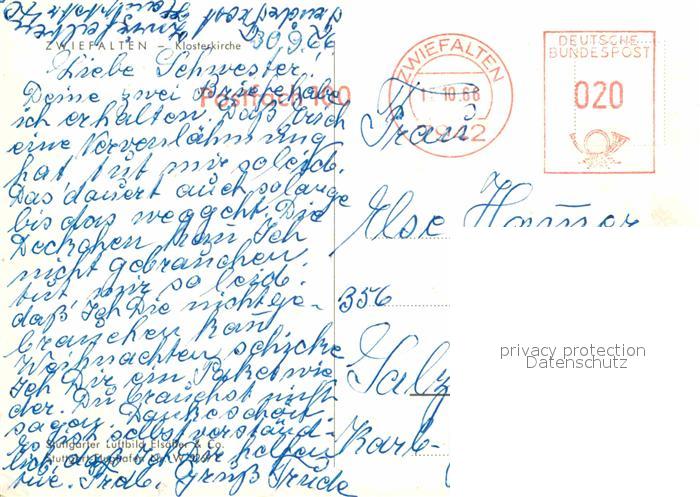 ZWIEFALTEN – Klosterkirche
30.9.66
Liebe Schwester!
Deine zwei Briefe habe
ich erhalten. Daß Erich
eine Nervenlähmung
hat, tut mir so leid.
Das dauert auch solange
bis das weggeht. Die
Deckchen kann Ich
nicht gebrauchen
tut mir so leid.
daß Ich Die nicht ge-
brauchen kann
Weihnachten schicke
Ich Dir ein Paket wie
der. Du brauchst nicht
sagen Dankeschön
Es ist selbstverständ-
lich, daß Ich Dir helfen
tue. Gruß Trude
Stuttgarter Luftbild Elsäßer & Co.
Stuttgart-Flughafen
Postfach 100
ZWIEFALTEN
1.10.66
DEUTSCHE
BUNDESPOST
020
Frau
Else
356
Karl-
privacy protection
Datenschutz